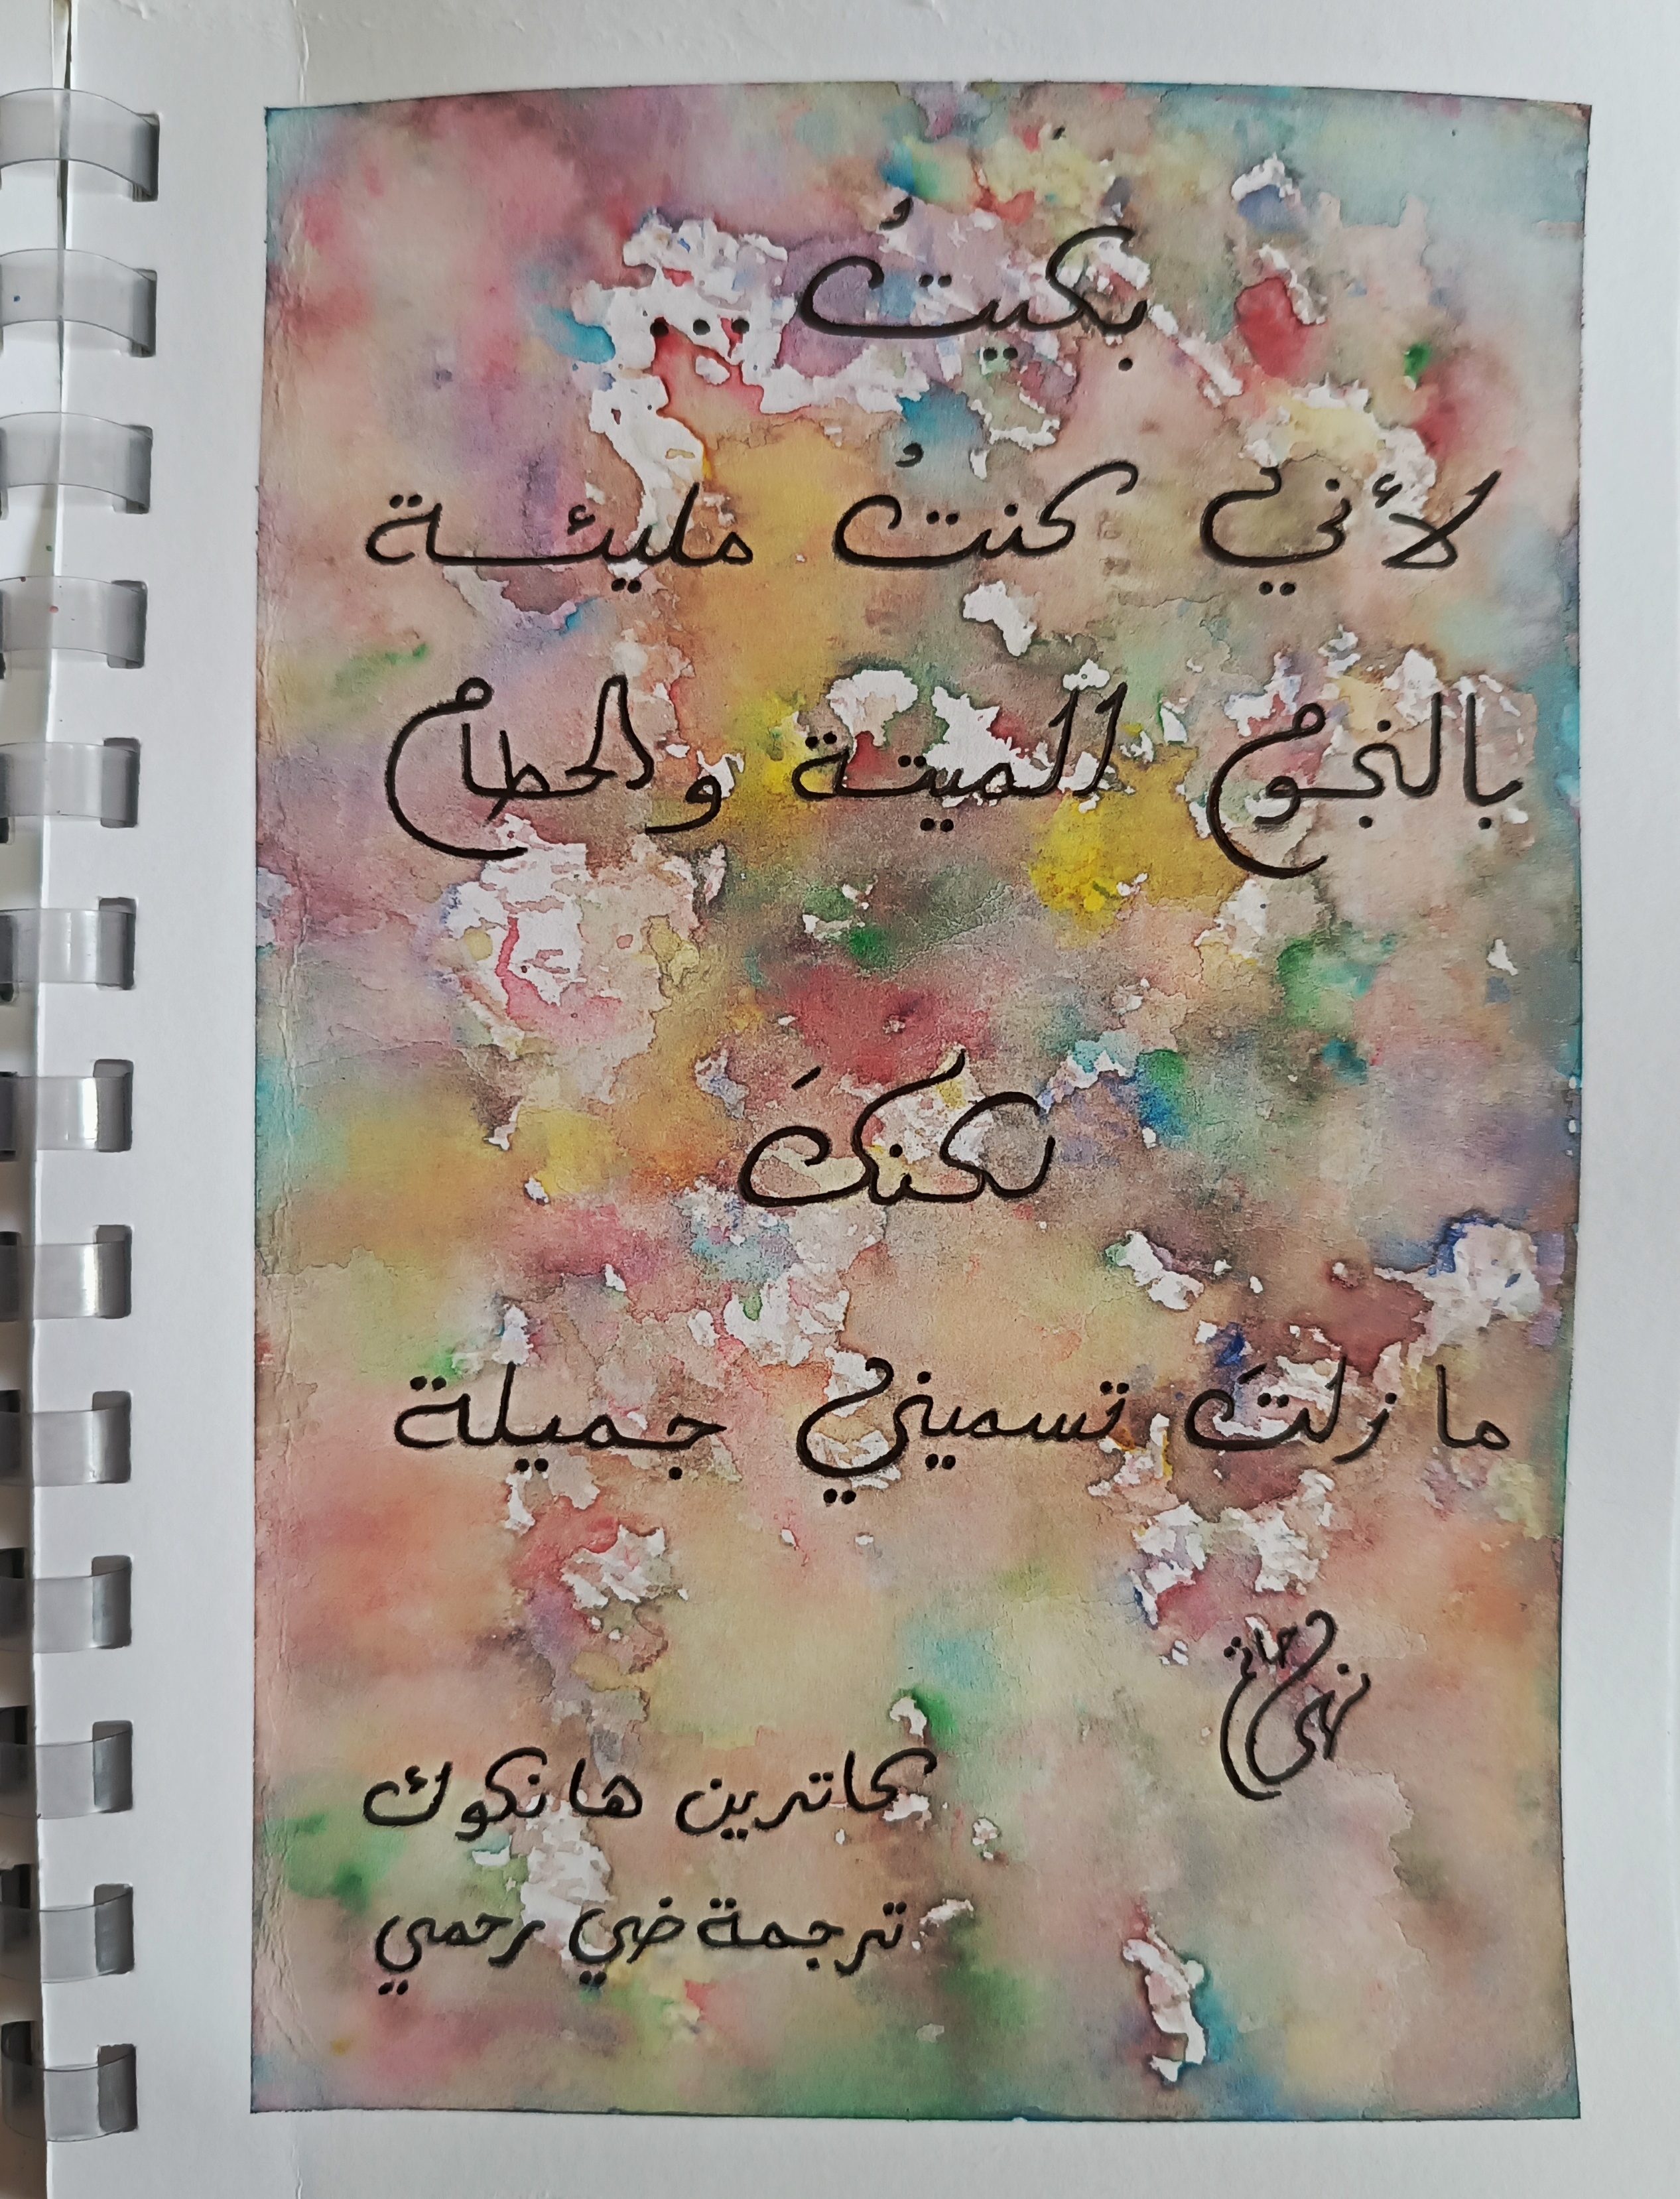 بكيتُ ...
لأني كنتُ مليئة
بالنجوم الميتة والحطام
لكنكَ
ما زلتَ تسميني جميلة
كاترين هانكوك
ترجمة ضي رحمي